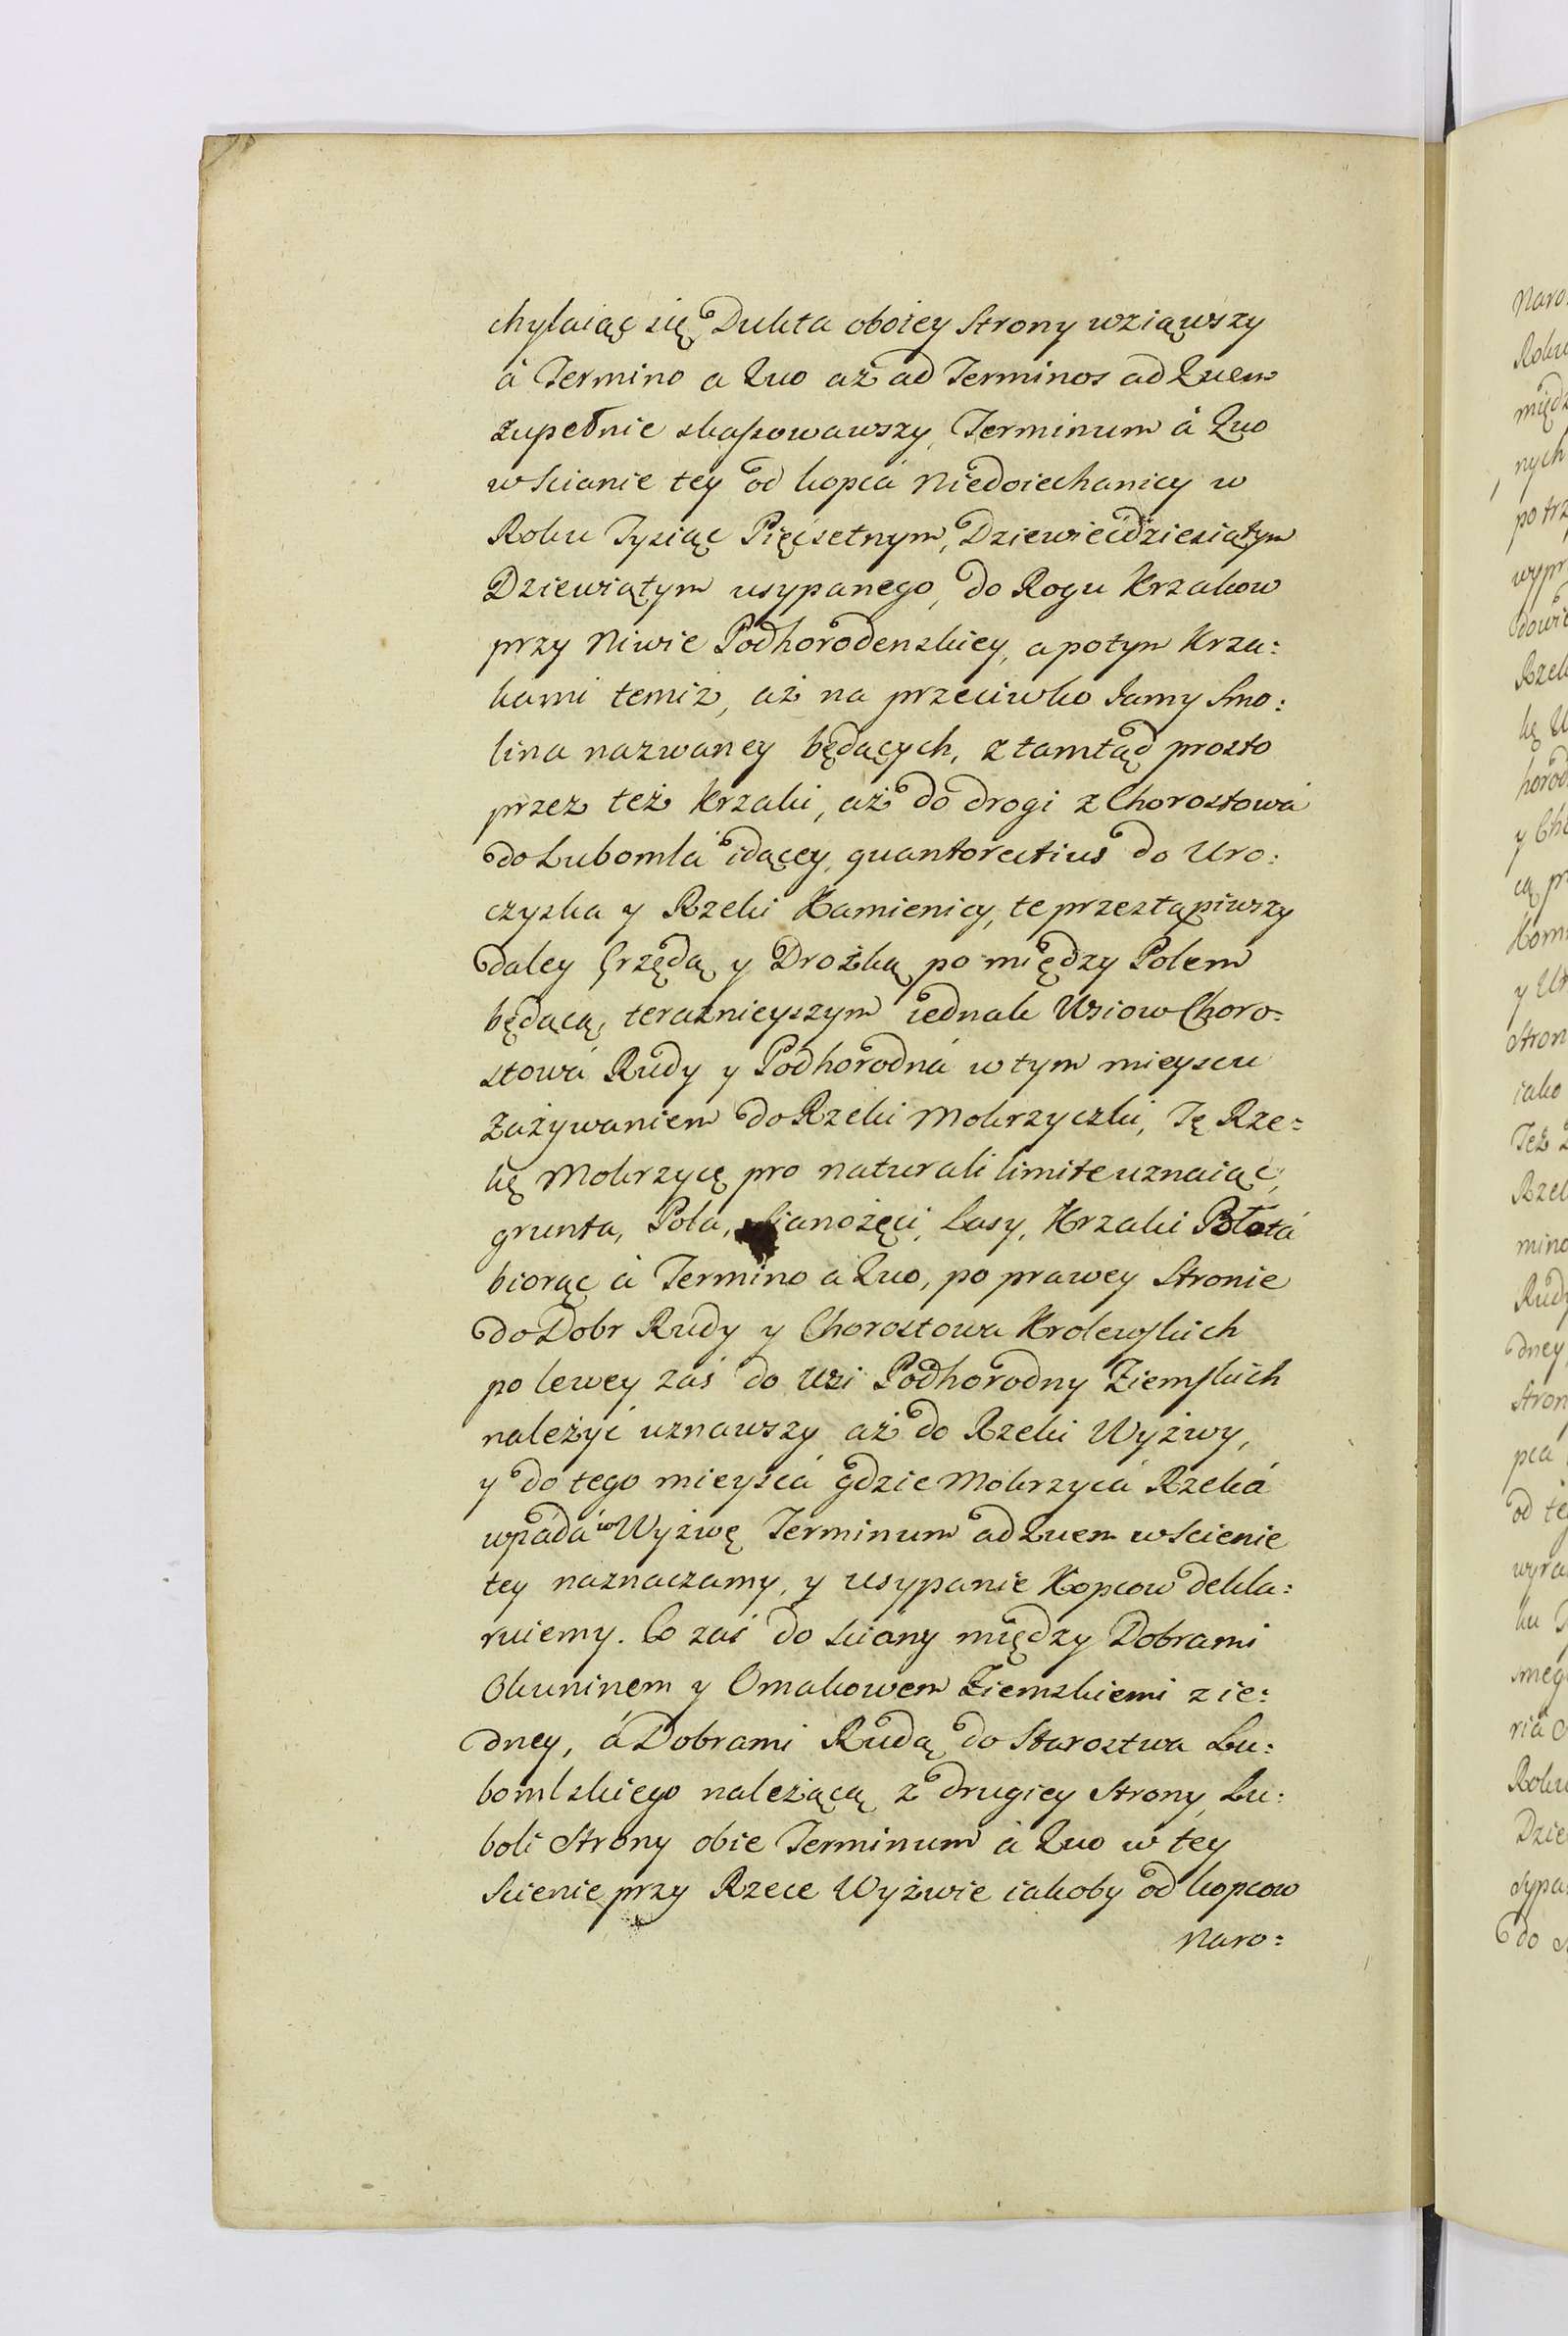 chylaiąc się Dukta oboiey Strony wziąwszy
á Termino a Quo aż ad Terminos ad Quem
zupełnie skaſsowawszy, Terminum á Quo
w Scianie tey od kopca Niedoiechanicy w
Roku Tysiąc Pięćsetnym, Dziewiećdziesiątym
Dziewiątym usypanego, do Rogu Krzakow
przy Niwie Podhorodenskiey, a potym Krza:
kami temiż, aż na przeciwko Jamy Smo:
lina nazwaney będących, z tamtąd prosto
przez też krzaki, aż do drogi z Chorostowá
do Lubomla idącey, quanto rectius do Uro:
czyska y Rzeki Kamienicy, te przestąpiwszy
daley grzędą y Drożką po między Polem
będącą, teraznieyszym iednak Wsiow Choro:
stowá Rudy y Podhorodná w tym mieyscu
Zażywaniem do Rzeki Mokrzyczki, Tę Rze:
kę Mokrzycę pro naturali limite uznaiąc,
grunta, Pola, Sianożęci, Lasy, Krzaki Błotá
biorąc á Termino a Quo, po prawey Stronie
do Dobr Rudy y Chorostowa Krolewſkich
po lewey zaś do Wsi Podhorodny Ziemſkich
należyć uznawszy aż do Rzeki Wyżwy,
y do tego mieyscá gdzie Mokrzycá Rzeká
wpádá w Wyżwę Terminum ad Quem w Scienie
tey naznaczamy, y usypanie Kopcow dekla:
ruiemy. Co zaś do sciany między Dobrami
Okuninem y Omakowem Ziemskiemi z ie:
dney, á Dobrami Rudą do Starostwa Lu:
bomlskiego należącą z drugiey Strony, Lu:
boli Strony obie Terminum á Quo w tey
Scienie przy Rzece Wyżwie iakoby od kopcow
Naro: